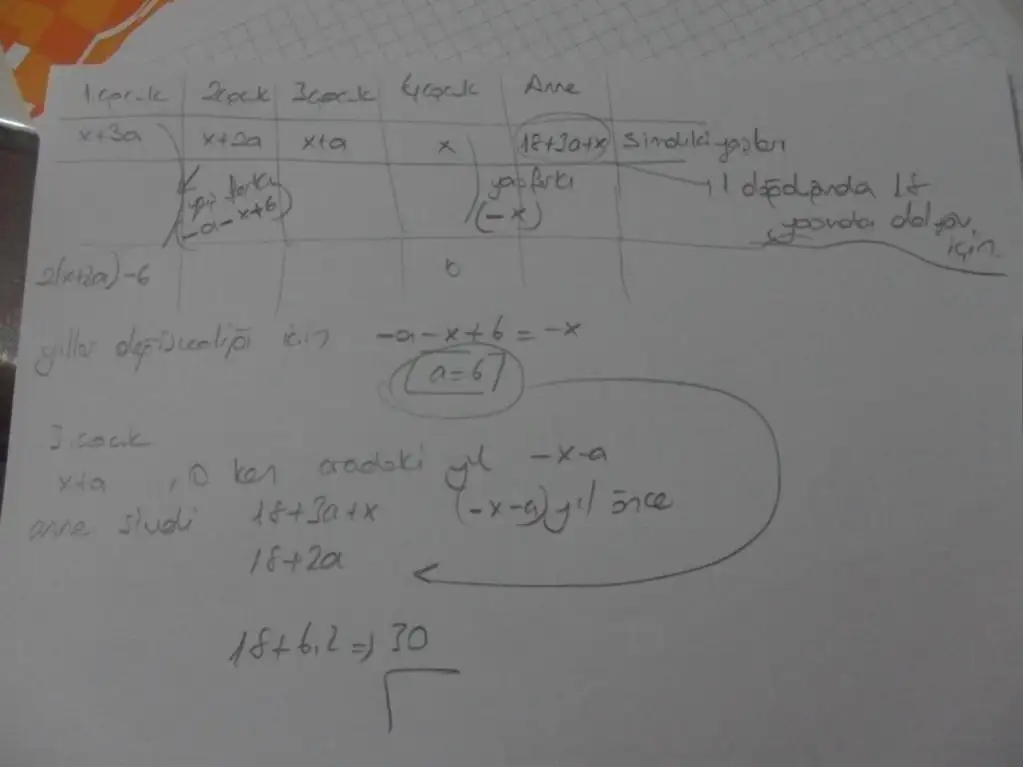 1.çocuk 2çocuk 3çocuk 4çocuk Anne
x+3a x+2a x+a x 18+3a+x Şimdiki yaşları
yaş farkı (-a-x+6) yaş farkı (-x) 1 doğduğunda 18
yaşında olduğu için
2(x+2a)-6 0
yıllar değişmediği için -a-x+6=-x
a=6
3.çocuk
x+a , 0 ken aradaki yıl -x-a
anne şimdi 18+3a+x (-x-a) yıl önce
18+2a
18+6.2=) 30